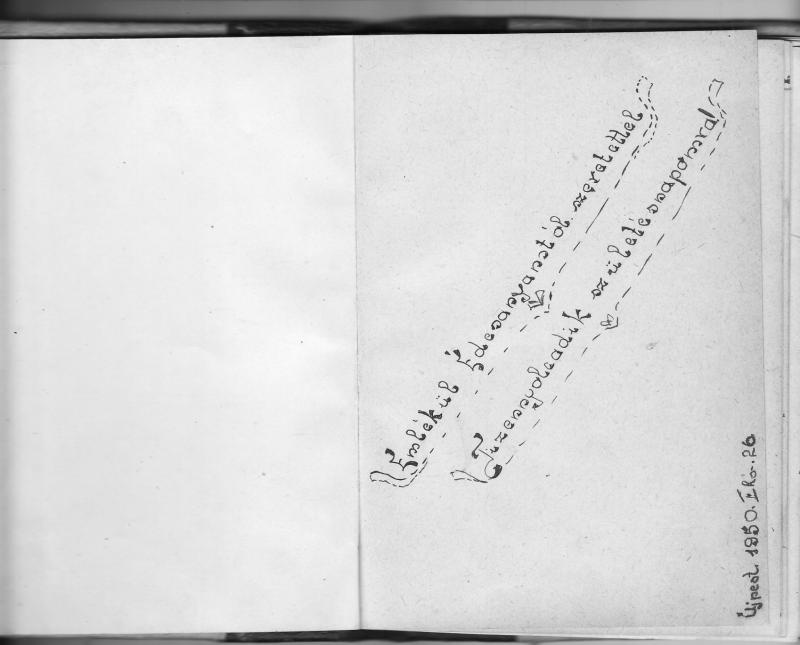 Emlékül Édesanyánstól szeretettel
Tizennyolcadik születésnapomra!
Újpest. 1950. II hó. 26